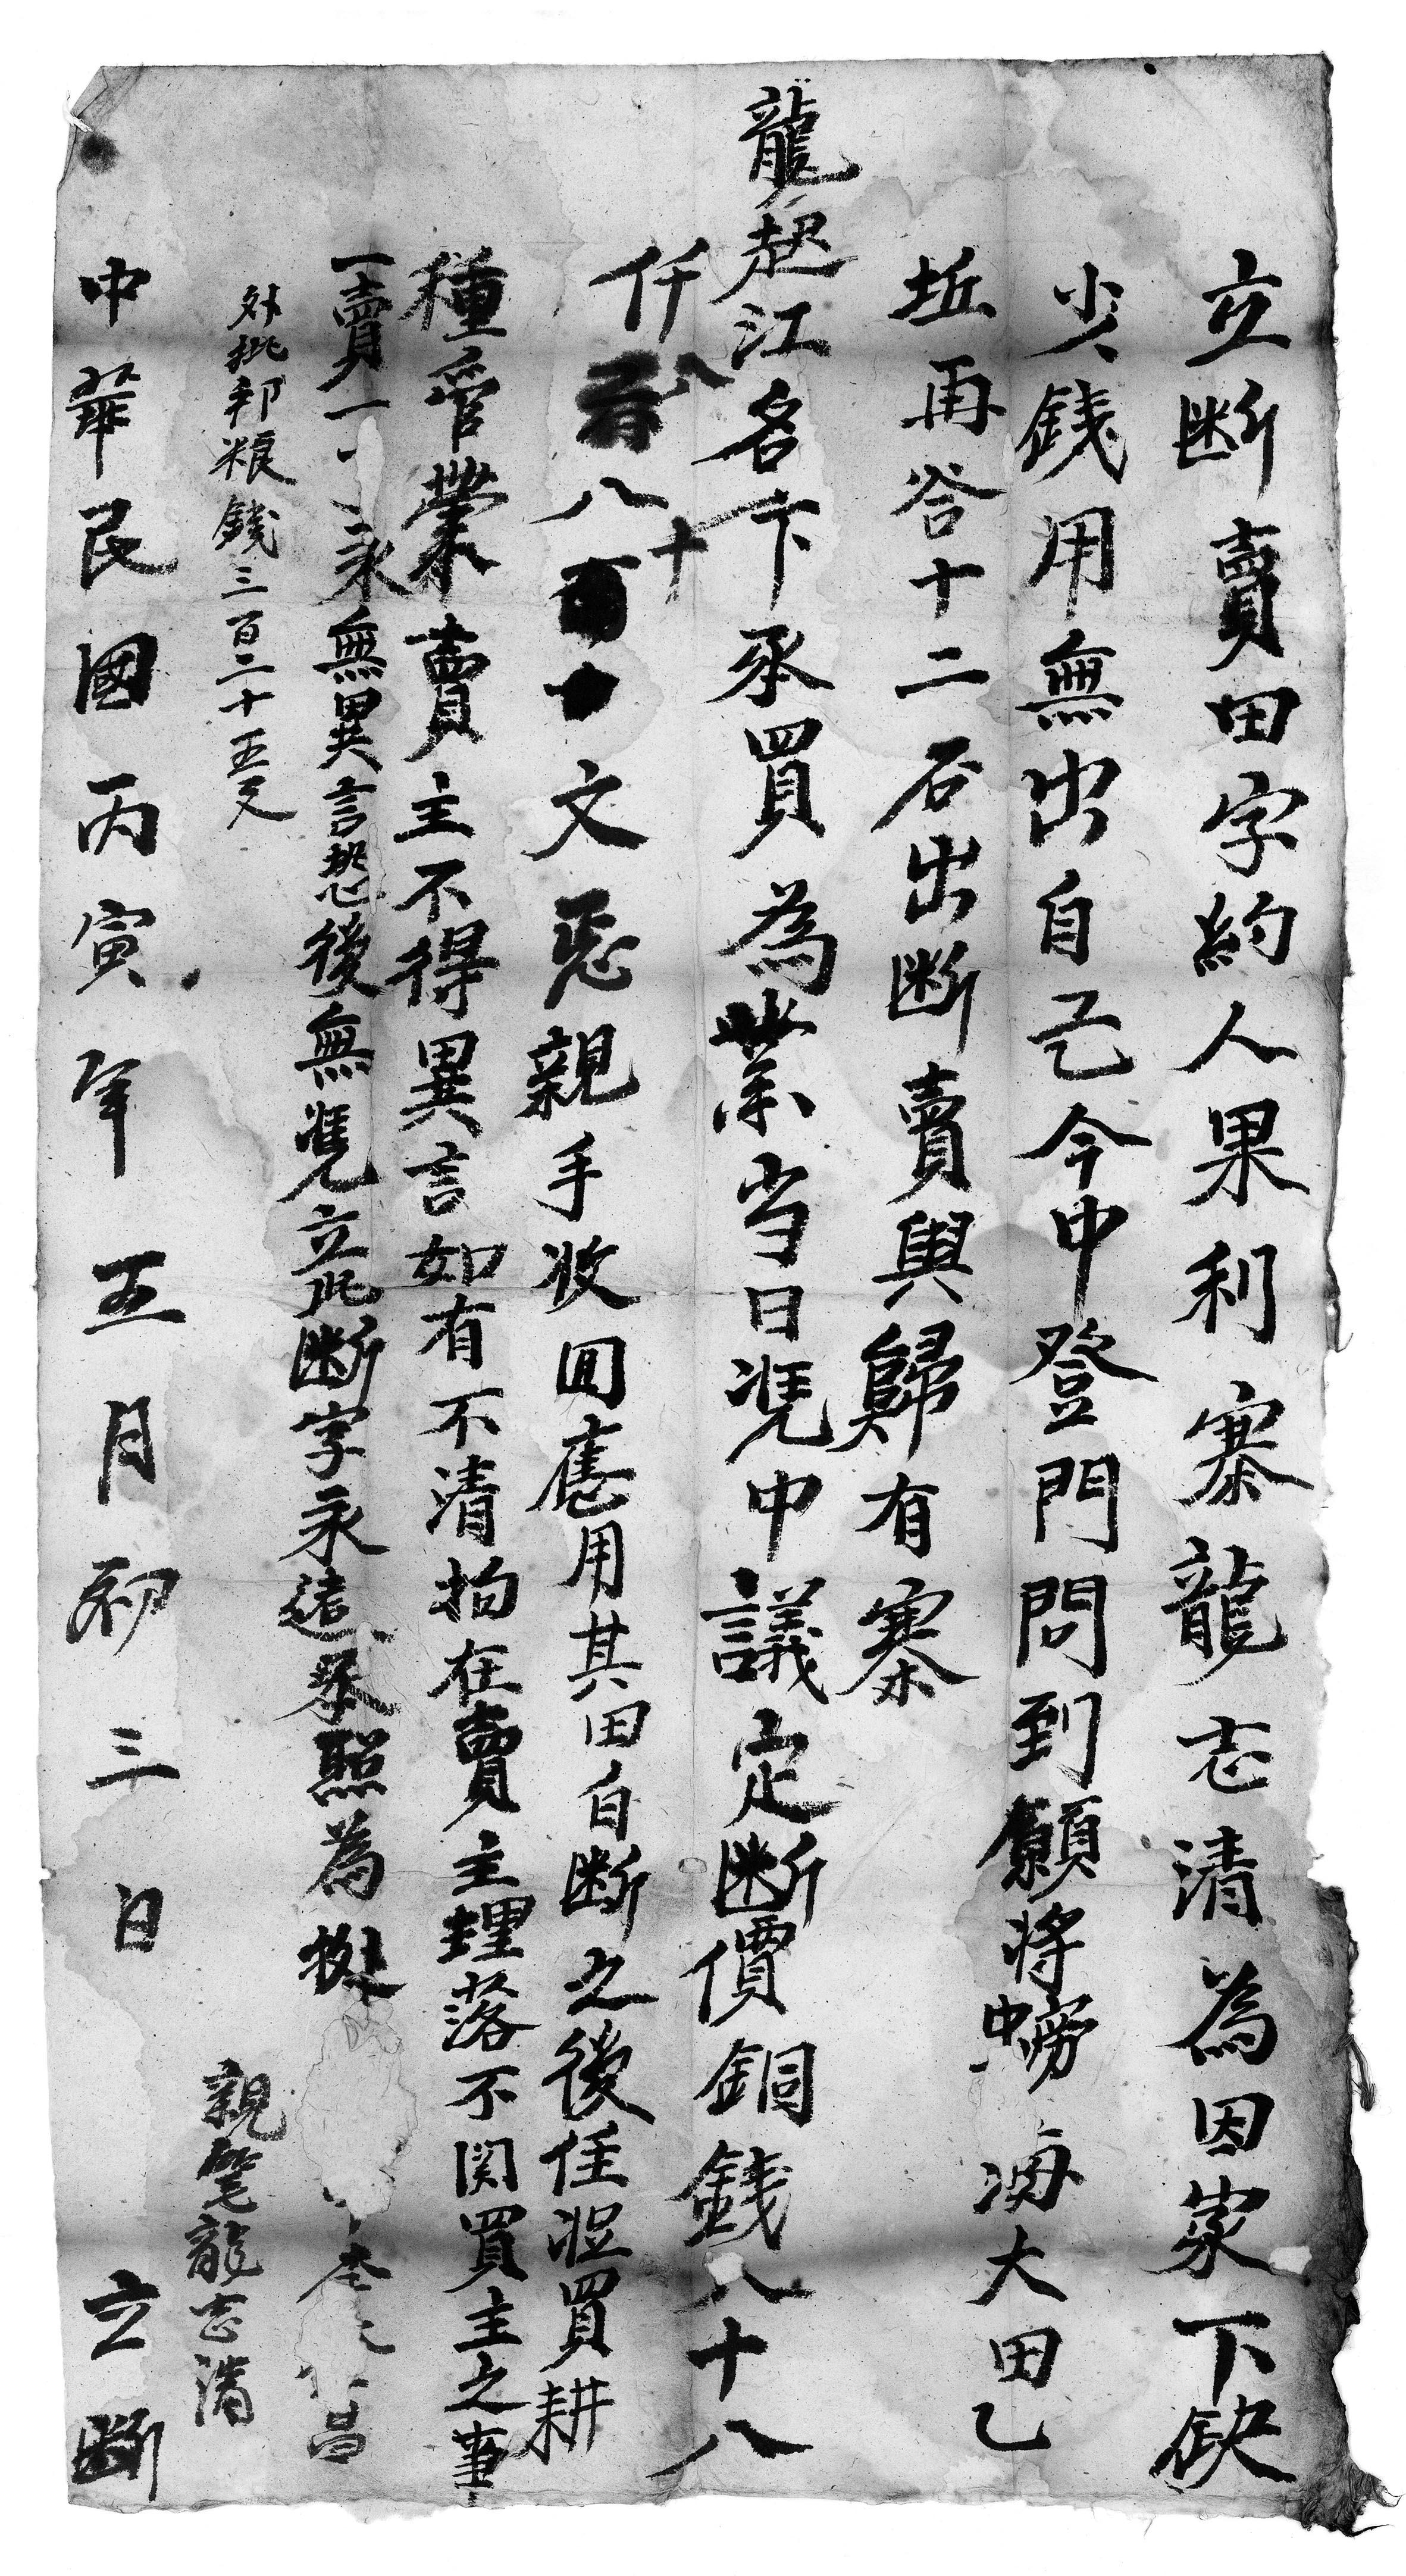 立断賣田字約人果利寨龍志清為因家下缺
少錢用無出自己今中登門問到願将塝中海大田乙
坵再谷十二石出断賣與歸有寨
龍起江名卞承買為業当日凭中議定断價銅錢八十八
仟八百八十文恁親手收回應用其田自断之後任凴買耕
種管業賣主不得異言如有不清拘在賣主理落不関買主之事
一賣一永無異言恐後無凴立此断字永遠承照為拠
外批邦粮錢三百二十五文
親筆龍志清
中華民國丙寅年五月初三日 立断